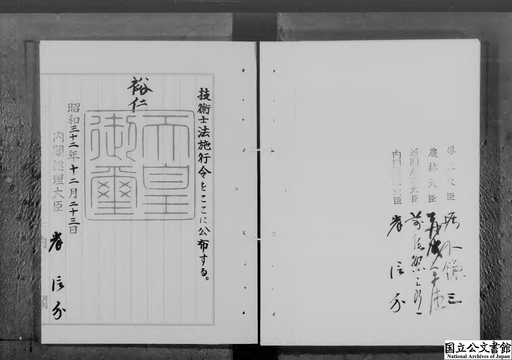 技術士法施行令をここに公布する。
裕仁
天皇
御璽
昭和三十二年十二月二十三日
内閣総理大臣 岸信介
厚生大臣 堀木鎌三
農林大臣
内閣総理大臣 岸信介
国立公文書館
National Archives of Japan